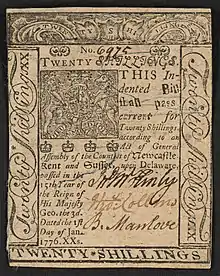 No. 6975
TWENTY SHILLINGS.
THIS In-
dented Bill
shall pass
current for
Twenty Shillings,
according to an
Act of General
Assembly of the Counties of Newcastle,
Kent and Sussex, upon Delaware,
passed in the
15th Year of
the Reign of
His Majesty
Geo. the 3d.
Dated the 1st
Day of Jan.
1776. XXs.
Thos Collins
B. Manlove
Twenty Shillings
Twenty Shillings
TWENTY-SHILLINGS